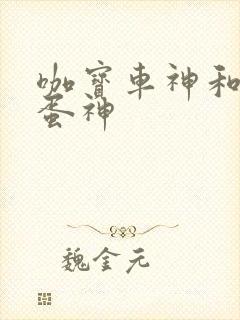 咖寶車神和
蛋神
魏金元